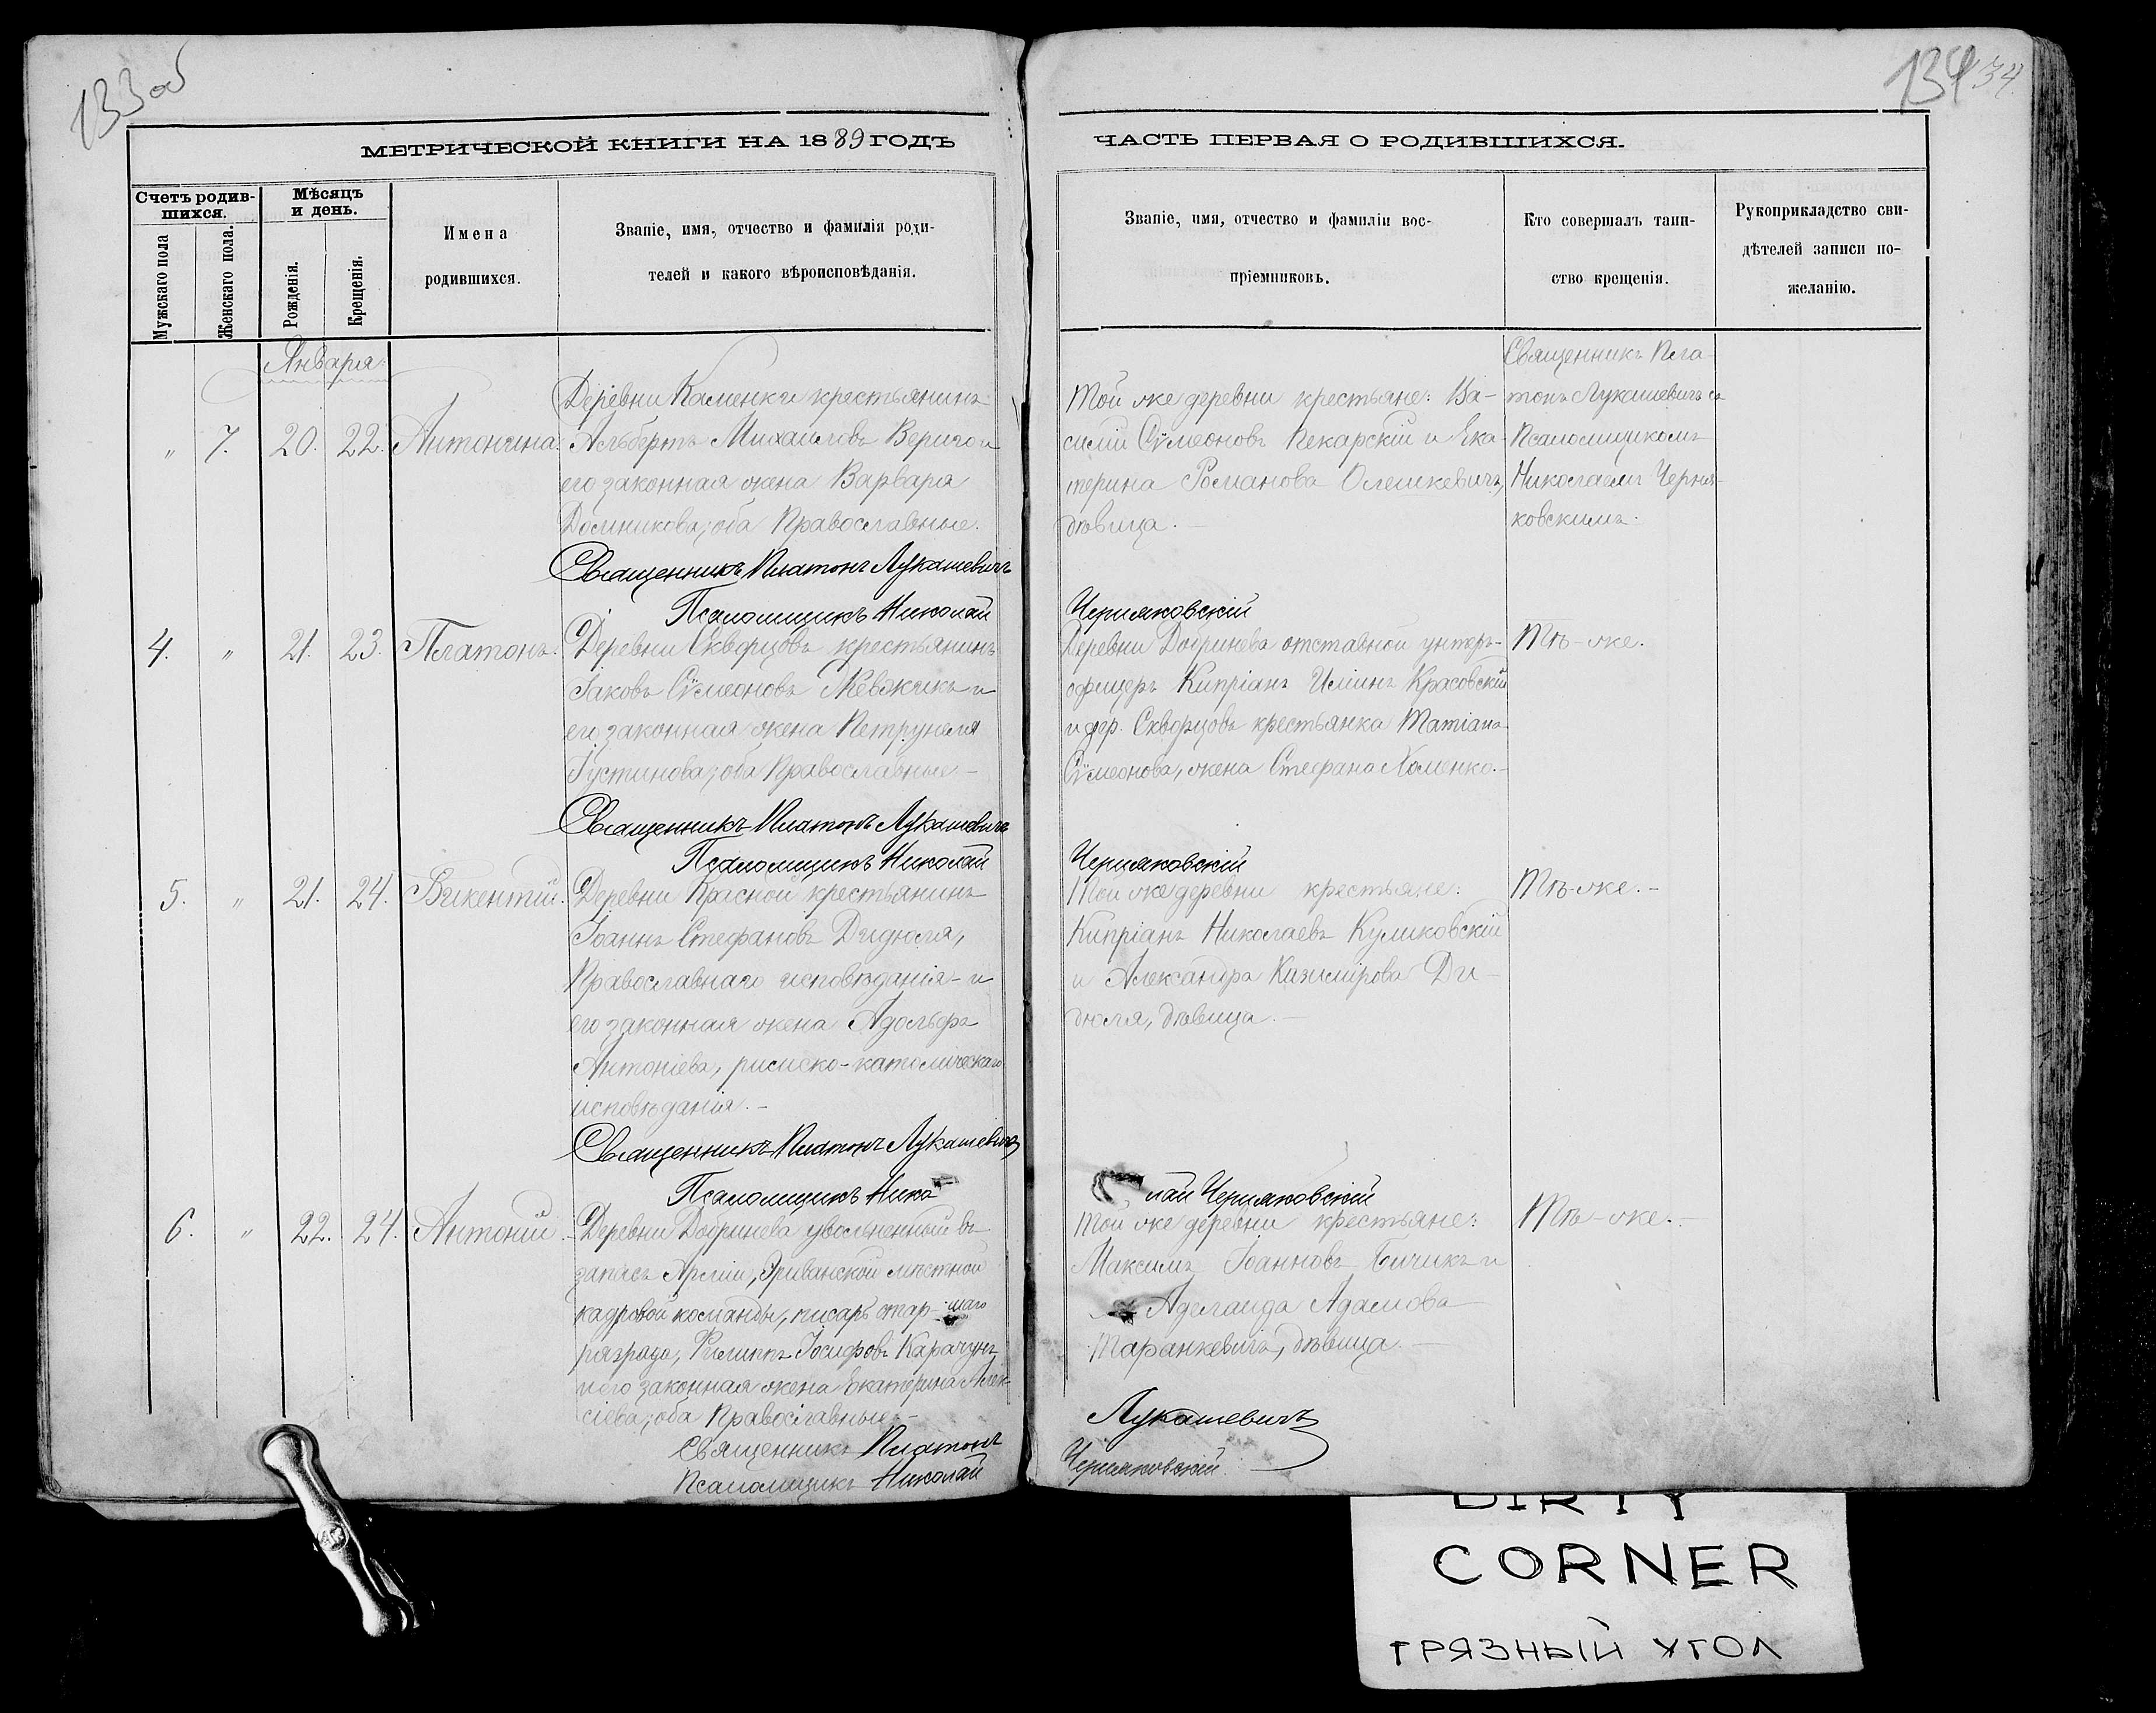 133 об
МЕТРИЧЕСКОЙ КНИГИ НА 1889 ГОДЪ
Счетъ родив-
шихся.
Мѣсяцъ
и день.
Мужскаго пола
Женскаго пола.
Рожденія.
Крещенія.
Имена
родившихся.
Званіе, имя, отчество и фамилія роди-
телей и какого вѣроисповѣданія.
Января
„ 7. 20. 22. Антонина.
Деревни Каменки крестьянинъ
Альбертъ Михаиловъ Вериго и
его законная жена Варвара
Доминикова; оба Православные.
Священникъ Платонъ Лукашевичъ
Псаломщикъ Николай
4. „ 21. 23. Платонъ.
Деревни Скворцовъ крестьянинъ
Іаковъ Сѵмеоновъ и
его законная жена Петрунеля
Іустинова; оба Православные —
Священникъ Платонъ Лукашевичъ
Псаломщикъ Николай
5. „ 21. 24. Викентій.
Деревни Красной крестьянинъ
Іоаннъ Стефановъ Дидюля,
Православнаго исповѣданія - и
его законная жена Адольфа
Антоніева, римско-католическаго
исповѣданія. —
Священникъ Платонъ Лукашевичъ
Псаломщикъ Нико
6. „ 22. 24. Антоній.
Деревни Добринева уволенный въ
запасъ Арміи, Эриванской мѣстной
кадровой команды, писарь стар-шаго
разряда, Филиппъ Іосифовъ Карачунъ
и его законная жена Екатерина Алек-
сіева; оба Православные. —
Священникъ Платонъ
Псаломщикъ Николай
134
34.
ЧАСТЬ ПЕРВАЯ О РОДИВШИХСЯ.
Званіе, имя, отчество и фамиліи вос-
пріемниковъ.
Кто совершалъ таин-
ство крещенія.
Рукоприкладство сви-
дѣтелей записи по-
желанію.
Той же деревни крестьяне: Ва-
силій Сѵмеоновъ Пекарскій и Ека-
терина Романова Олешкевичъ,
дѣвица. —
Священникъ Пла-
тонъ Лукашевичъ съ
Псаломщикомъ
Николаемъ Черня-
ковскимъ.
Черняковскій
Деревни Добринева отставной унтеръ-
офицеръ Кипріанъ Ильинъ Красовскій
и дер. Скворцовъ крестьянка Татіана
Сѵмеонова, жена Стефана Хоменко. —
Тѣ-же.
Черняковскій
Той же деревни крестьяне:
Кипріанъ Николаевъ Куликовскій
и Александра Казимірова Ди-
дюля, дѣвица. —
Тѣ-же. —
лай Черняковскій
Той же деревни крестьяне:
Максимъ Іоанновъ Бичикъ и
Аделаида Адамова
Таранкевичъ, дѣвица. —
Тѣ-же. —
Лукашевичъ
Черняковскій.
DIRTY
CORNER
ГРЯЗНЫЙ УГОЛ